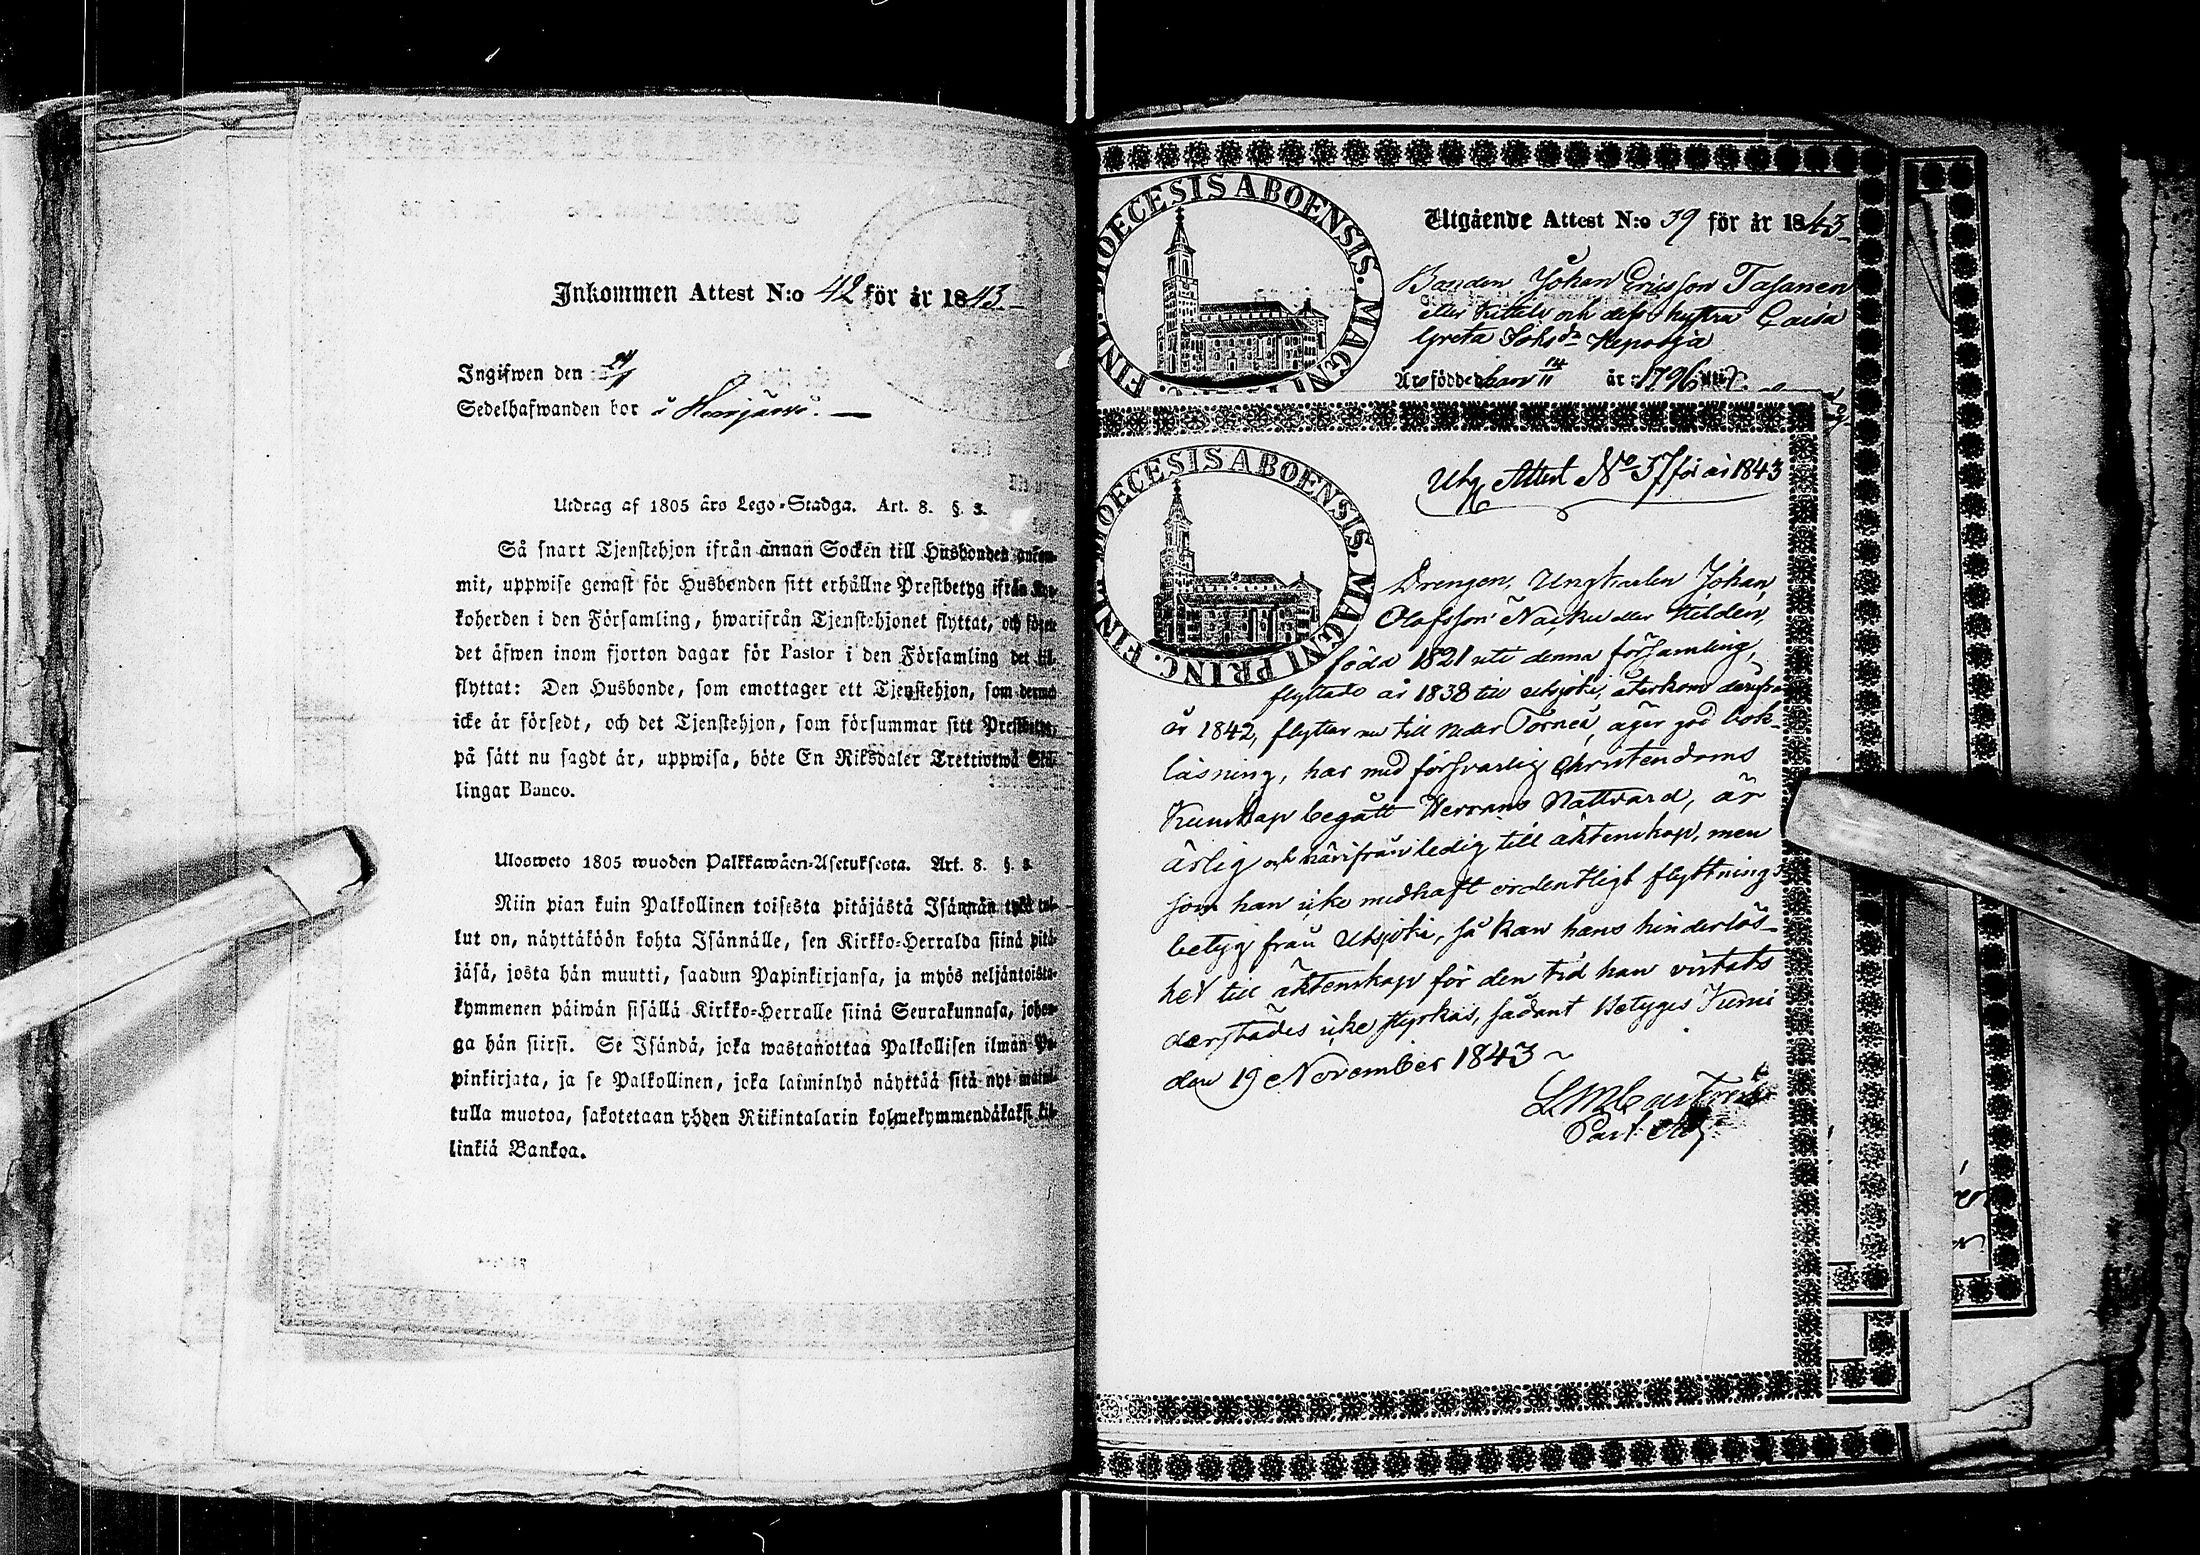 Inkommen Attest N:o 42 för år 1843
Ingifwen den
Sedelhafwanden bor i
Utdrag af 1805 års Lego-Stadga. Art. 8. §. 3.
Så snart Tjenstehjon ifrån annan Socken till Husbonden ankom-
mit, uppwise genast för Husbonden sitt erhållne Prestbetyg ifrån Kyr-
koherden i den Församling, hwarifrån Tjenstehjonet flyttat, och förete
det äfwen inom fjorton dagar för Pastor i den Församling det till-
flyttat: Den Husbonde, som emottager ett Tjenstehjon, som dermed
icke är försedt, och det Tjenstehjon, som försummar sitt Prestbetyg,
på sätt nu sagdt är, uppwisa, böte En Riksdaler Trettiotwå Skil-
lingar Banco.
Ulosweto 1805 wuoden Palkkawäen-Asetuksesta. Art. 8. §. 3.
Niin pian kuin Palkollinen toisesta pitäjästä Isännän tykö tul-
lut on, näyttäköön kohta Isännälle, sen Kirkko-Herralda siinä pitä-
jäsä, josta hän muutti, saadun Papinkirjansa, ja myös neljäntoista-
kymmenen päiwän sisällä Kirkko-Herralle siinä Seurakunnasa, johon-
ga hän siirsi. Se Isändä, joka wastanottaa Palkollisen ilman Pa-
pinkirjata, ja se Palkollinen, joka laiminlyö näyttää sitä nyt maini-
tulla muotoa, sakotetaan yhden Riikintalarin kolmekymmendäkaksi kil-
linkiä Bankoa.
DIOECESIS ABOENSIS. MAGNI FINL.
Utgående Attest N:o 39 för år 1843
Johan Ericsson Tasanen
eller Kittelä och dess hustru Caisa
Greta Johsdr
Äro födde han 14/11 år 1796
DIOECESIS ABOENSIS. MAGNI PRINC. FINL.
Utg Attest No 37 för år 1843
Drengen, Ungkarlen Johan
Olofsson Näcku eller Kilden,
född 1821 uti denna församling,
flyttade år 1838 till Utsjoki, återkom derifrån
år 1842, flyttar nu till Neder Torneå, äger god bok-
läsning, har med försvarlig Christendoms
Kunskap begått Herrans Nattvard, är
ärlig och härifrån ledig till äktenskap, men
som han icke medhaft ordentligt flyttnings
betyg från Utsjoki, så kan hans hinderlös-
het till äktenskap för den tid han vistats
derstädes icke styrkas, sådant Betygas Kemi
den 19 November 1843
L M Castorin
Past. Adj.